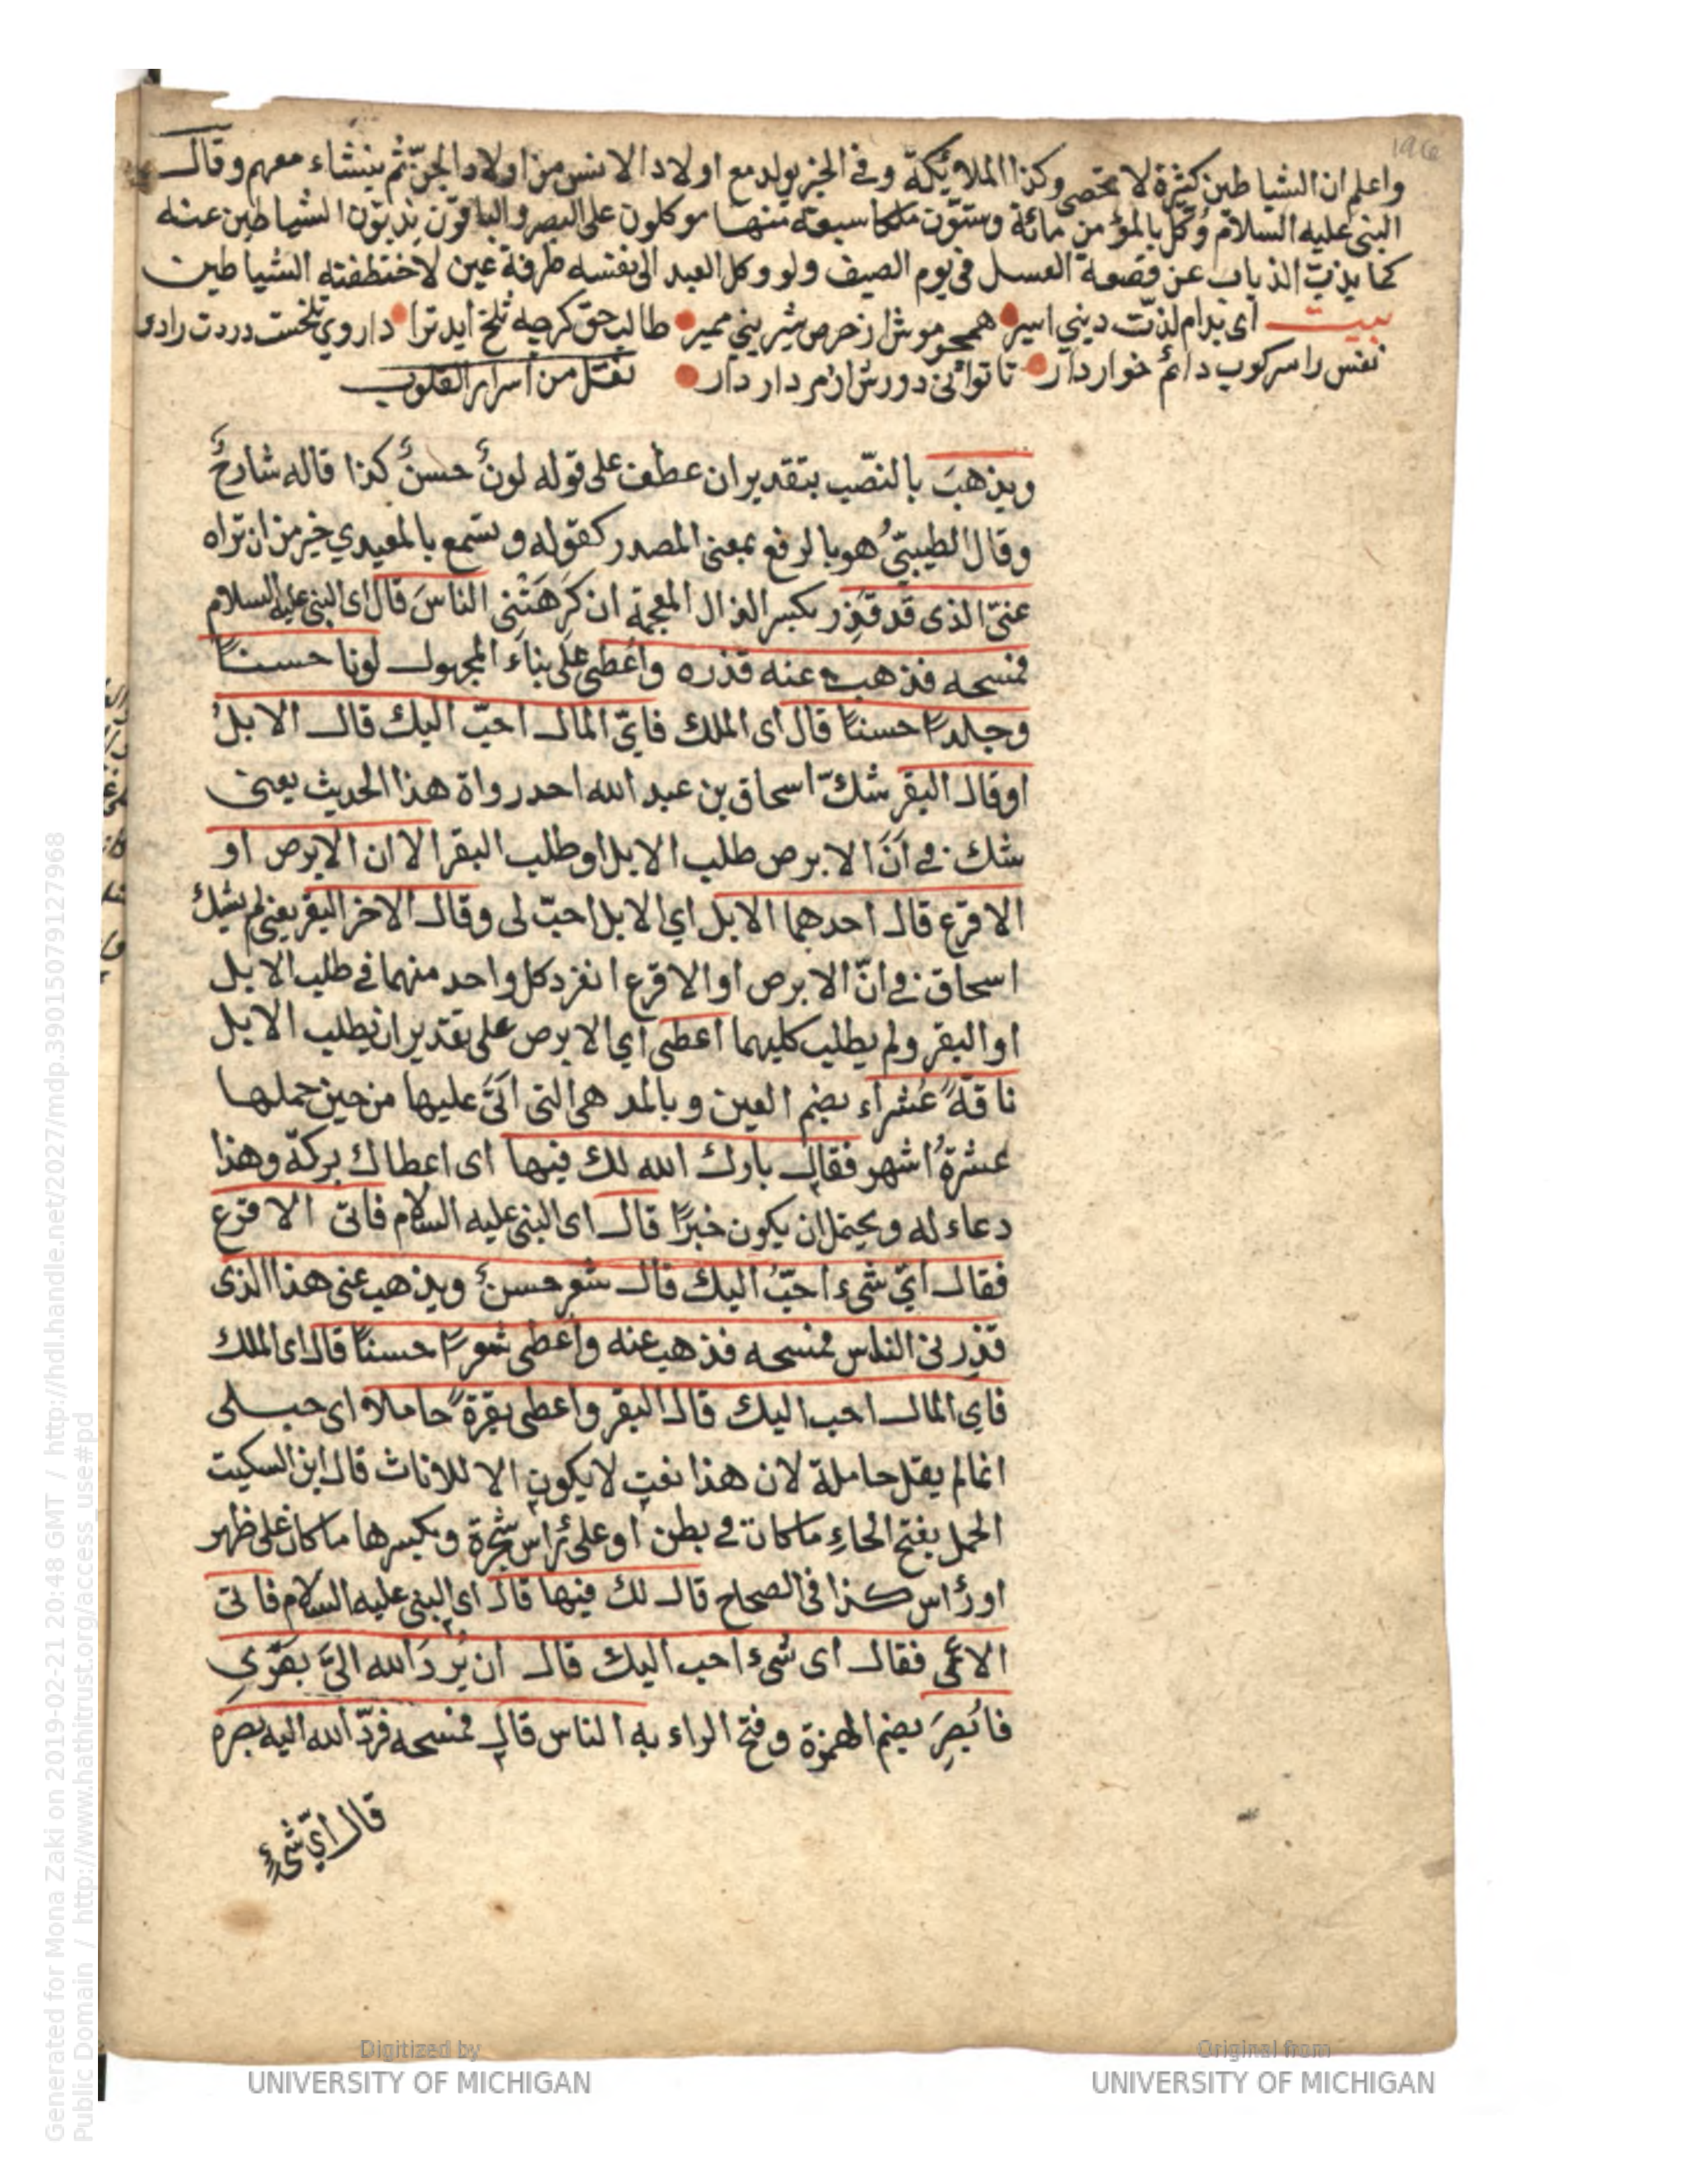 واعلم ان الشياطين كثيرة لا تحصى وكذا الملائكة وفي الخبر يولد مع اولاد الانس من اولاد الجن ثم ينشاء معهم وقال
النبي عليه السلام وُكّل بالمؤمن مائة وستون ملكا سبعة منها موكلون على البصر والباقون يذبون الشياطين عنه
كما يذبّ الذباب عن قصعة العسل في يوم الصيف ولو وكل العبد الى نفسه طرفة عين لاختطفته الشياطين
بيت اى بدام لذت ديني اسير همچو موش از حرص شيريني ممير طالب حق كرچه تلخ ايد ترا داروي تلخست دردت را
نفس را سركوب دائم خوار دار تا توانى دورش از مردار دار نقل من اسرار القلوب
ويذهبَ بالنصّب بتقدير ان عطف على قوله لونٌ حسنٌ كذا قاله شارحٌ
وقال الطيبيّ هو بالرفع بمعنى المصدر كقوله وتسمع بالمعيدي خير من ان تراه
عنّي الذى قد قَذِر بكسر الذال المعجمة ان كَرِهَتْني الناسَ قال اى النبي عليه السلام
فمسحه فذهب عنه قذره واُعطى على بناء المجهول لونا حسنًا
وجلدًا حسنًا قال اى الملك فايّ المال احبّ اليك قال الابلُ
اوقال البقر شكّ اسحاق بن عبد الله احد رواة هذا الحديث يعنى
شك في اَنّ الابرص طلب الابل او طلب البقر الا ان الابرص او
الاقرع قال احدهما الابل اي الابل احبّ لى وقال الاخر البقر يعنى لم يشك
اسحاق في انّ الابرص او الاقرع انفرد كل واحد منهما في طلب الابل
او البقر ولم يطلب كليهما اعطى اي الابرص على تقدير ان يطلب الابل
ناقةً عُشَراء بضم العين وبالمد هى التى اَتَى عليها من حين حملها
عشرةُ اشهر فقال بارك الله لك فيها اى اعطاك بركة وهذا
دعاء له ويحتمل ان يكون خبرًا قال اى النبي عليه السلام فاتى الاقرع
فقال ايّ شىء احبّ اليك قال شعر حسنٌ ويذهب عنى هذا الذى
قذِرنى الناس فمسحه فذهب عنه واُعطى شعرًا حسنًا قال اى الملك
فاي المال احب اليك قال البقر واعطى بقرةً حاملا اى حبلى
انما لم يقل حاملة لان هذا نعت لا يكون الا للاناث قال ابن السكيت
الحمل بفتح الحاءِ ما كان في بطن او على رأس شجرة وبكسرها ما كان على ظهر
او رأس كذا فى الصحاح قال لك فيها قال اى النبي عليه السلام فاتى
الاعمى فقال اى شىء احب اليك قال ان يُردّ الله الىّ بصَري
فاُبصِرَ بضم الهمزة وفتح الراء به الناس قال فمسحه فردّ الله اليه بصره
قال ايّ شىءٍ
Generated for Mona Zaki on 2019-02-21 20:48 GMT / http://hdl.handle.net/2027/mdp.39015079127968
Public Domain / http://www.hathitrust.org/access_use#pd
Digitized by
UNIVERSITY OF MICHIGAN
Original from
UNIVERSITY OF MICHIGAN